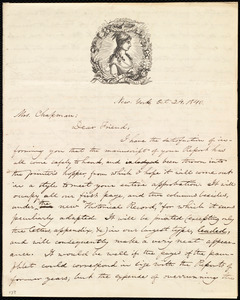 New York Oct 24, 1840.
Mrs. Chapman:
Dear Friend,
I have the satisfaction of in-
forming you that the manuscript of your Report has
all come safely to hand, and already been thrown into
the printer's hopper, from which I hope it will come
out in a style to meet your entire approbation. It will
occupy all our first page, and two columns besides,
under the new "National Record," for which it was
peculiarly adapted. It will be printed (excepting only
the letter appendix,) in our largest type, leaded,
and will consequently make a very neat appear-
ance. It would be well if the pages of the pam-
phlet would correspond in size with the Reports of
former years, but the expense of overrunning in